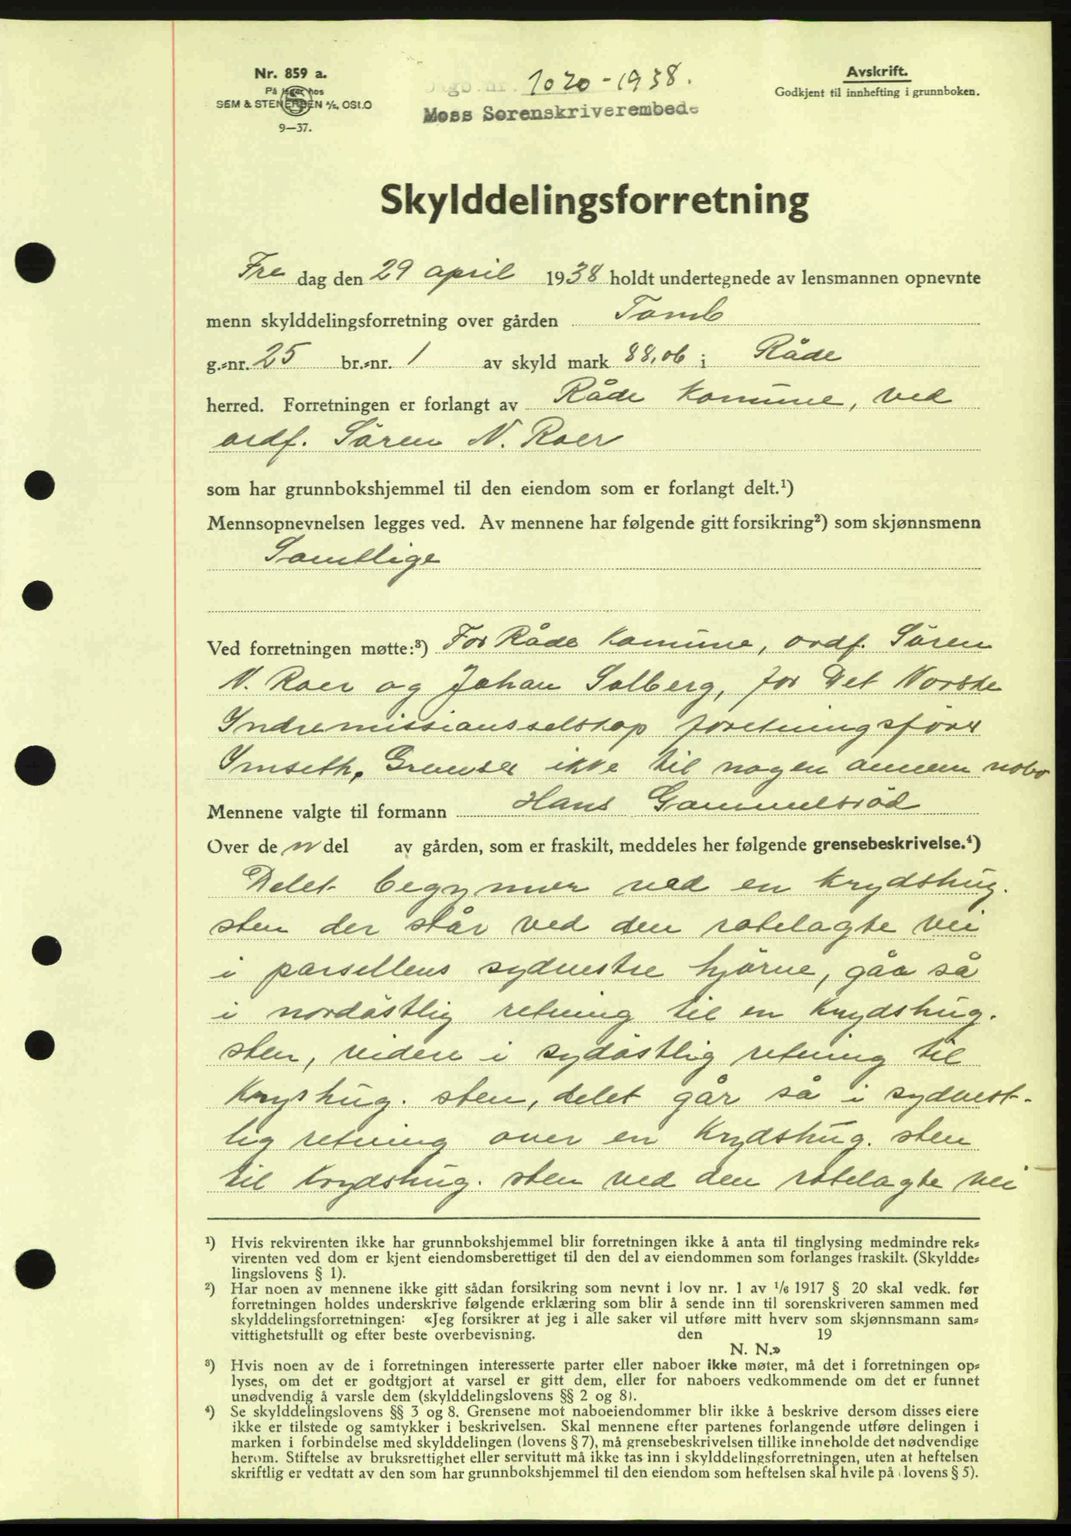 Nr. 859 a.
På lager hos
SEM & STENERSEN A/S, OSLO
9—37.
Dagb. nr. 1020-1938.
Moss Sorenskriverembede
Avskrift.
Godkjent til innhefting i grunnboken.
Skylddelingsforretning
Fre dag den 29 april 1938 holdt undertegnede av lensmannen opnevnte
menn skylddelingsforretning over gården Tomb
g.-nr. 25 br.-nr. 1 av skyld mark 88,06 i Råde
herred. Forretningen er forlangt av Råde Komune, ved
ordf. Sören N. Roer
som har grunnbokshjemmel til den eiendom som er forlangt delt.¹)
Mennsopnevnelsen legges ved. Av mennene har følgende gitt forsikring²) som skjønnsmenn
Samtlige
Ved forretningen møtte:³) For Råde Komune, ordf. Sören
N. Roer og Johan Solberg, for Det Norske
Indremissionsselskap foretningsförer
Imseth. Grenser ikke til nogen annem nabo
Mennene valgte til formann Hans Gammelsröd
Over de n del av gården, som er fraskilt, meddeles her følgende grensebeskrivelse.⁴)
Delet begynner ved en krydshug.
sten der står ved den rodelagte vei
i parsellens sydvestre hjörne, går så
i nordöstlig retning til en krydshug.
sten, videre i sydöstlig retning til
Kryshug. sten, delet går så i sydvest-
lig retning over en Krydshug. sten
til Krydshug. sten ved den rodelagte vei
¹) Hvis rekvirenten ikke har grunnbokshjemmel blir forretningen ikke å anta til tinglysing medmindre rek-
virenten ved dom er kjent eiendomsberettiget til den del av eiendommen som forlanges fraskilt. (Skyldde-
lingslovens § 1).
²) Har noen av mennene ikke gitt sådan forsikring som nevnt i lov nr. 1 av 1/6 1917 § 20 skal vedk. før
forretningen holdes underskrive følgende erklæring som blir å sende inn til sorenskriveren sammen med
skylddelingsforretningen: «Jeg forsikrer at jeg i alle saker vil utføre mitt hverv som skjønnsmann sam-
vittighetsfullt og efter beste overbevisning. den 19
N. N.»
³) Hvis noen av de i forretningen interesserte parter eller naboer ikke møter, må det i forretningen op-
lyses, om det er godtgjort at varsel er gitt dem, eller for naboers vedkommende om det er funnet
unødvendig å varsle dem (skylddelingslovens §§ 2 og 8).
⁴) Se skylddelingslovens §§ 3 og 8. Grensene mot naboeiendommer blir ikke å beskrive dersom disses eiere
ikke er tilstede og samtykker i beskrivelsen. Skal mennene efter partenes forlangende utføre delingen i
marken i forbindelse med skylddelingen (lovens § 7), må grensebeskrivelsen tillike inneholde det nødvendige
herom. Stiftelse av bruksrettighet eller servitutt må ikke tas inn i skylddelingsforretningen, uten at heftelsen
skriftlig er vedtatt av den som har grunnbokshjemmel til den eiendom som heftelsen skal hvile på (lovens § 5).